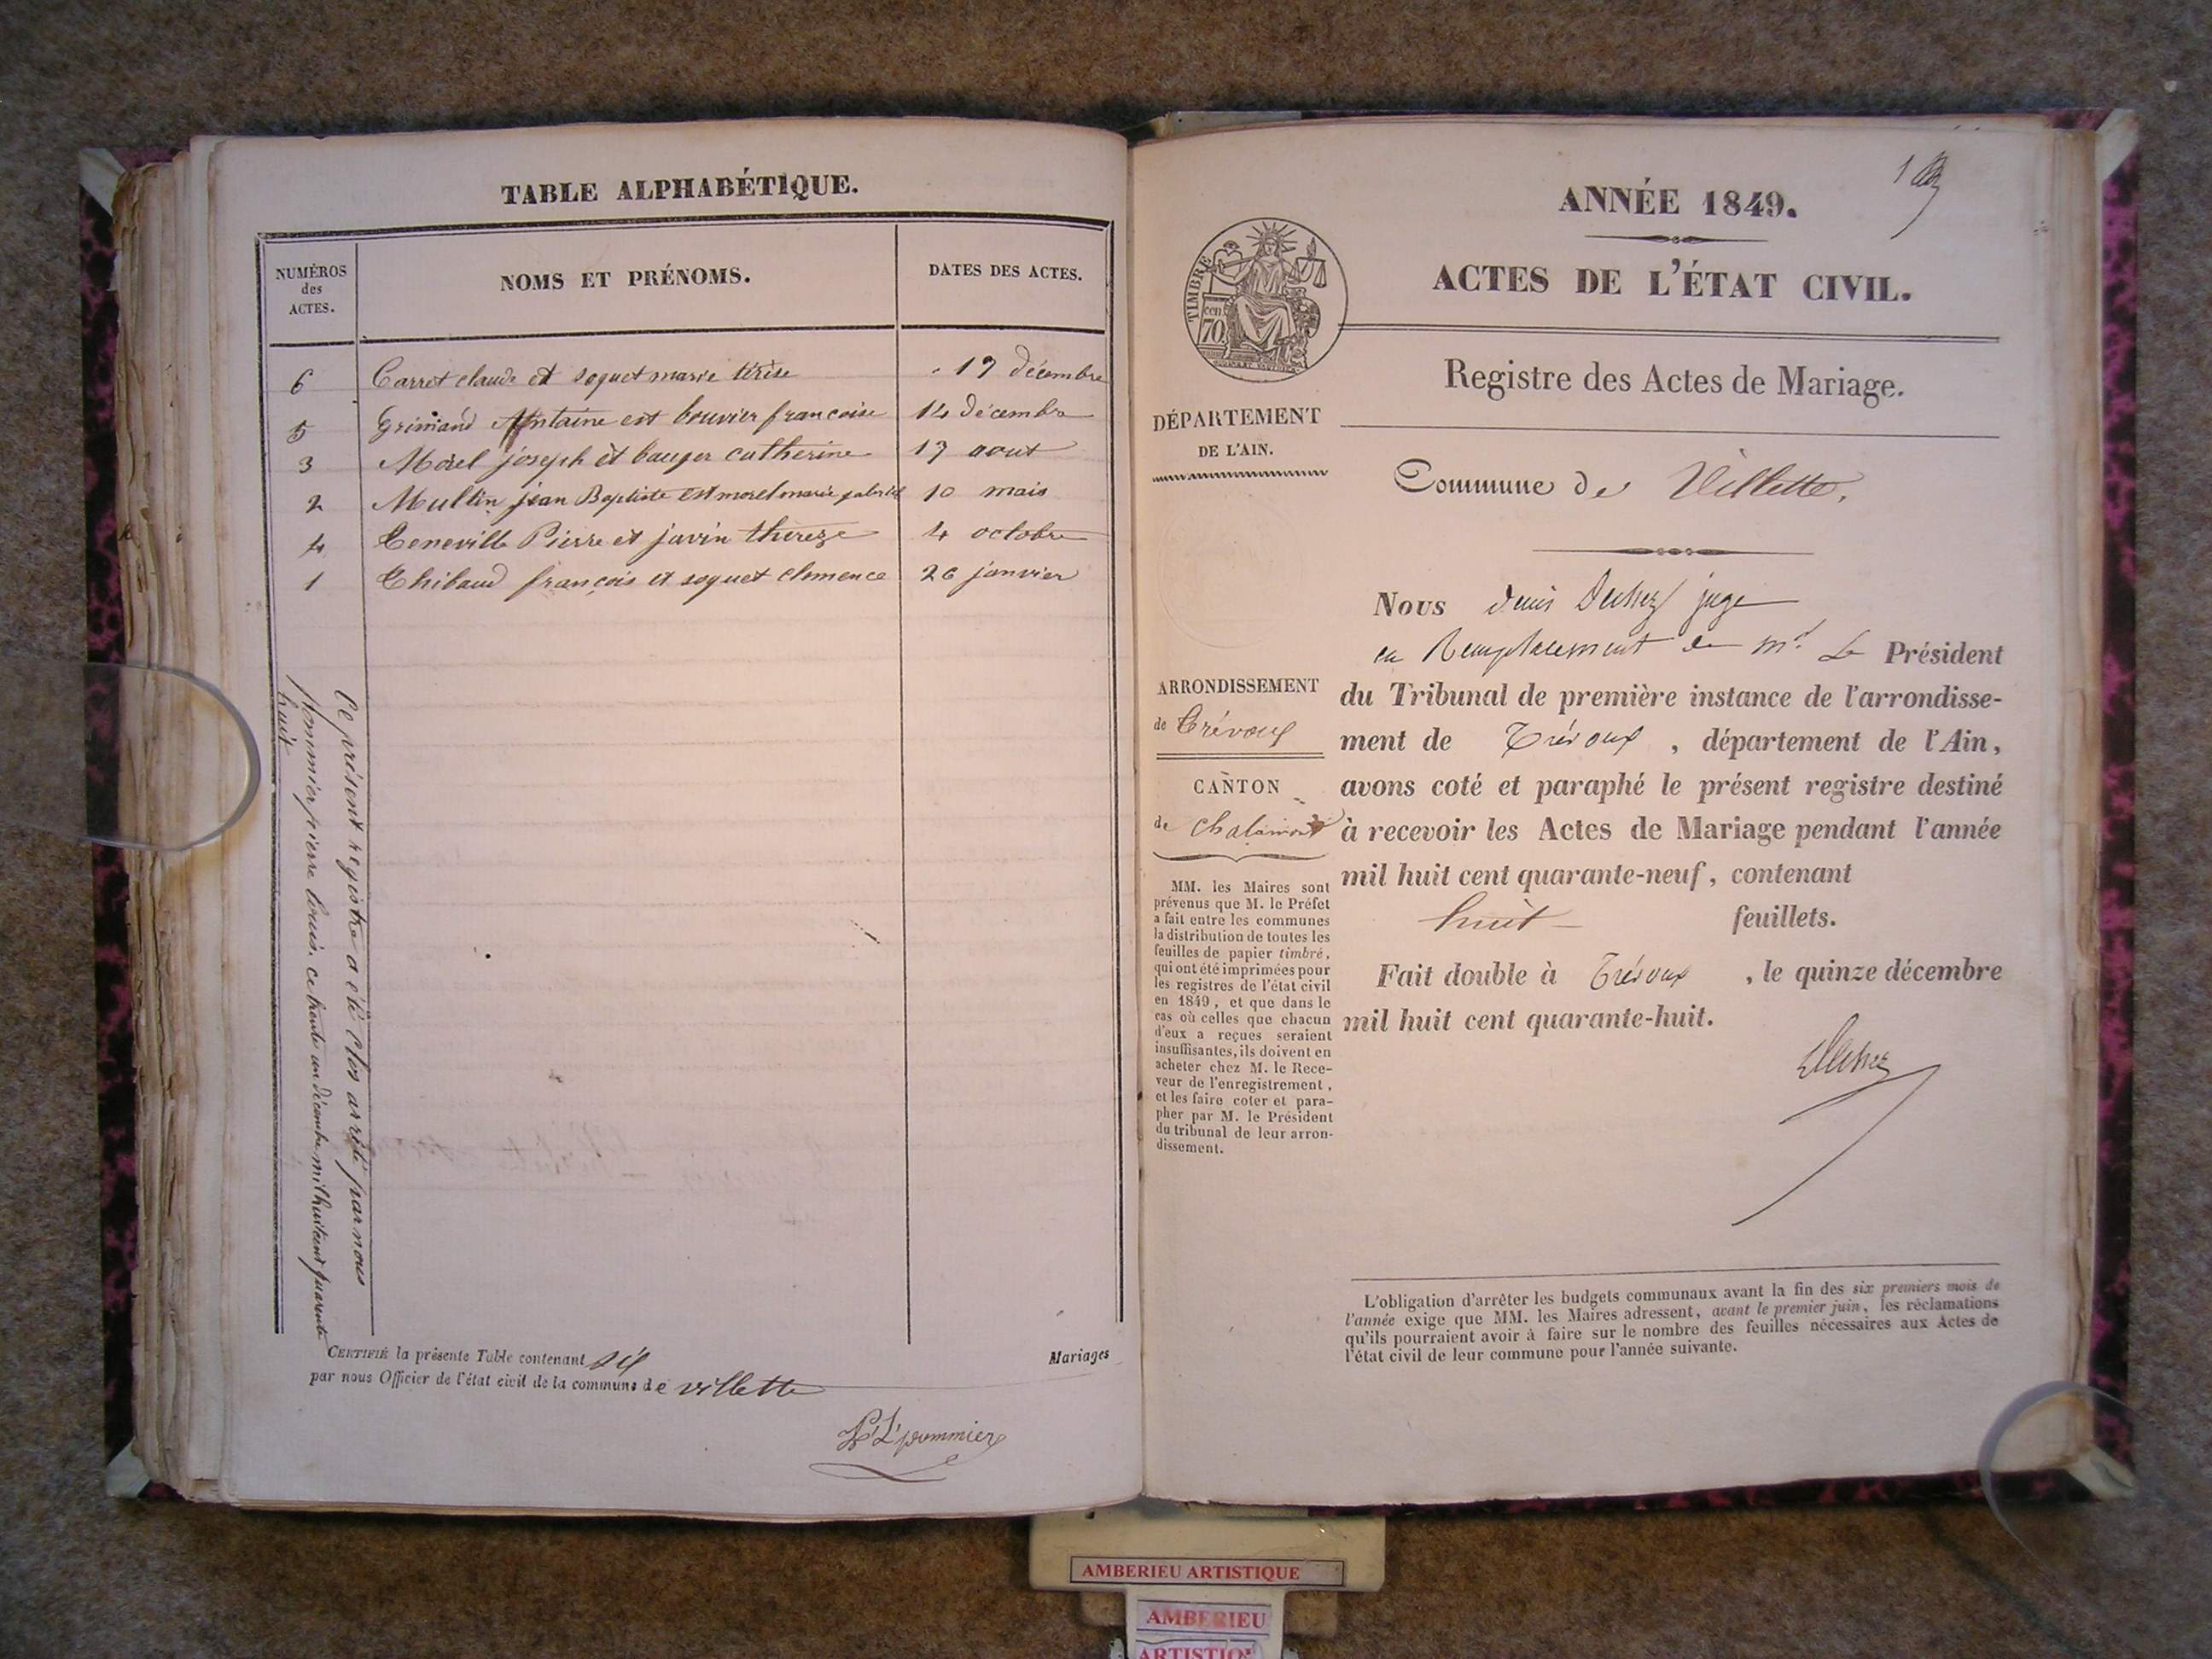 TABLE ALPHABÉTIQUE.
NUMÉROS
des
ACTES.
NOMS ET PRÉNOMS.
DATES DES ACTES.
6 Carret claude et soquet marie térèse 19 décembre
5 Grimand Antoine est bouvier francoise 14 décembre
3 Morel joseph et bauger catherine 19 aout
2 Multin jean Baptiste est morel marie 10 mais
4 Teneville Pierre et javin thereze 4 octobre
1 Thibaud françois et soquet clemence 26 janvier
Ce présent registre a été clos arrêté par nous
pommier pierre louis. ce trente un décembre mil huit cent quarante
huit
CERTIFIÉ la présente Table contenant six Mariages
par nous Officier de l'état civil de la commune de villette
P. L. pommier
1
ANNÉE 1849.
ACTES DE L'ÉTAT CIVIL.
TIMBRE
cen.
70
Registre des Actes de Mariage.
DÉPARTEMENT
DE L'AIN.
Commune de Villette.
Nous Denis juge
en Remplacement de Mr. Le Président
du Tribunal de première instance de l'arrondisse-
ment de Trévoux , département de l'Ain,
avons coté et paraphé le présent registre destiné
à recevoir les Actes de Mariage pendant l'année
mil huit cent quarante-neuf, contenant
huit feuillets.
Fait double à Trévoux , le quinze décembre
mil huit cent quarante-huit.
ARRONDISSEMENT
de Trévoux
CANTON
de chalamont
MM. les Maires sont
prévenus que M. le Préfet
a fait entre les communes
la distribution de toutes les
feuilles de papier timbré,
qui ont été imprimées pour
les registres de l'état civil
en 1849, et que dans le
cas où celles que chacun
d'eux a reçues seraient
insuffisantes, ils doivent en
acheter chez M. le Rece-
veur de l'enregistrement,
et les faire coter et para-
pher par M. le Président
du tribunal de leur arron-
dissement.
L'obligation d'arrêter les budgets communaux avant la fin des six premiers mois de
l'année exige que MM. les Maires adressent, avant le premier juin, les réclamations
qu'ils pourraient avoir à faire sur le nombre des feuilles nécessaires aux Actes de
l'état civil de leur commune pour l'année suivante.
AMBERIEU ARTISTIQUE
AMBERIEU